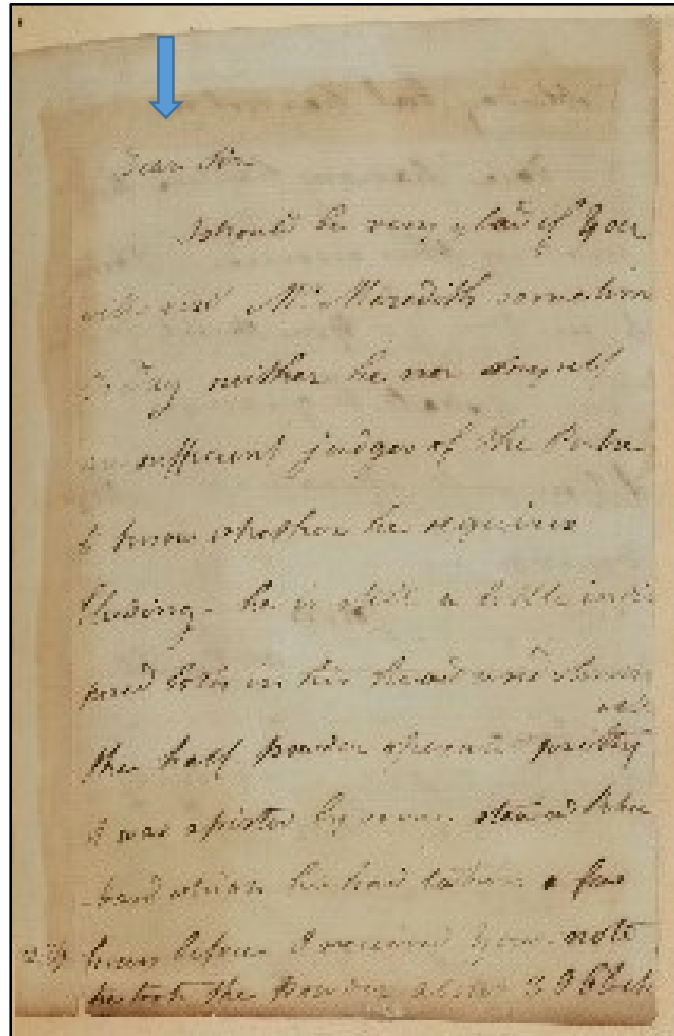 Dear Sir
I should be very glad if you
will visit Mr. Meredith sometime
to Day neither he nor myself
are sufficient judges of the Pulse
to know whether he requires
bleeding - he is still a little
both in his head and
well
the half powder operated pretty
it was by seven
when he had taken a few
hours before I received your note
he took the Powder about 3 O Clock